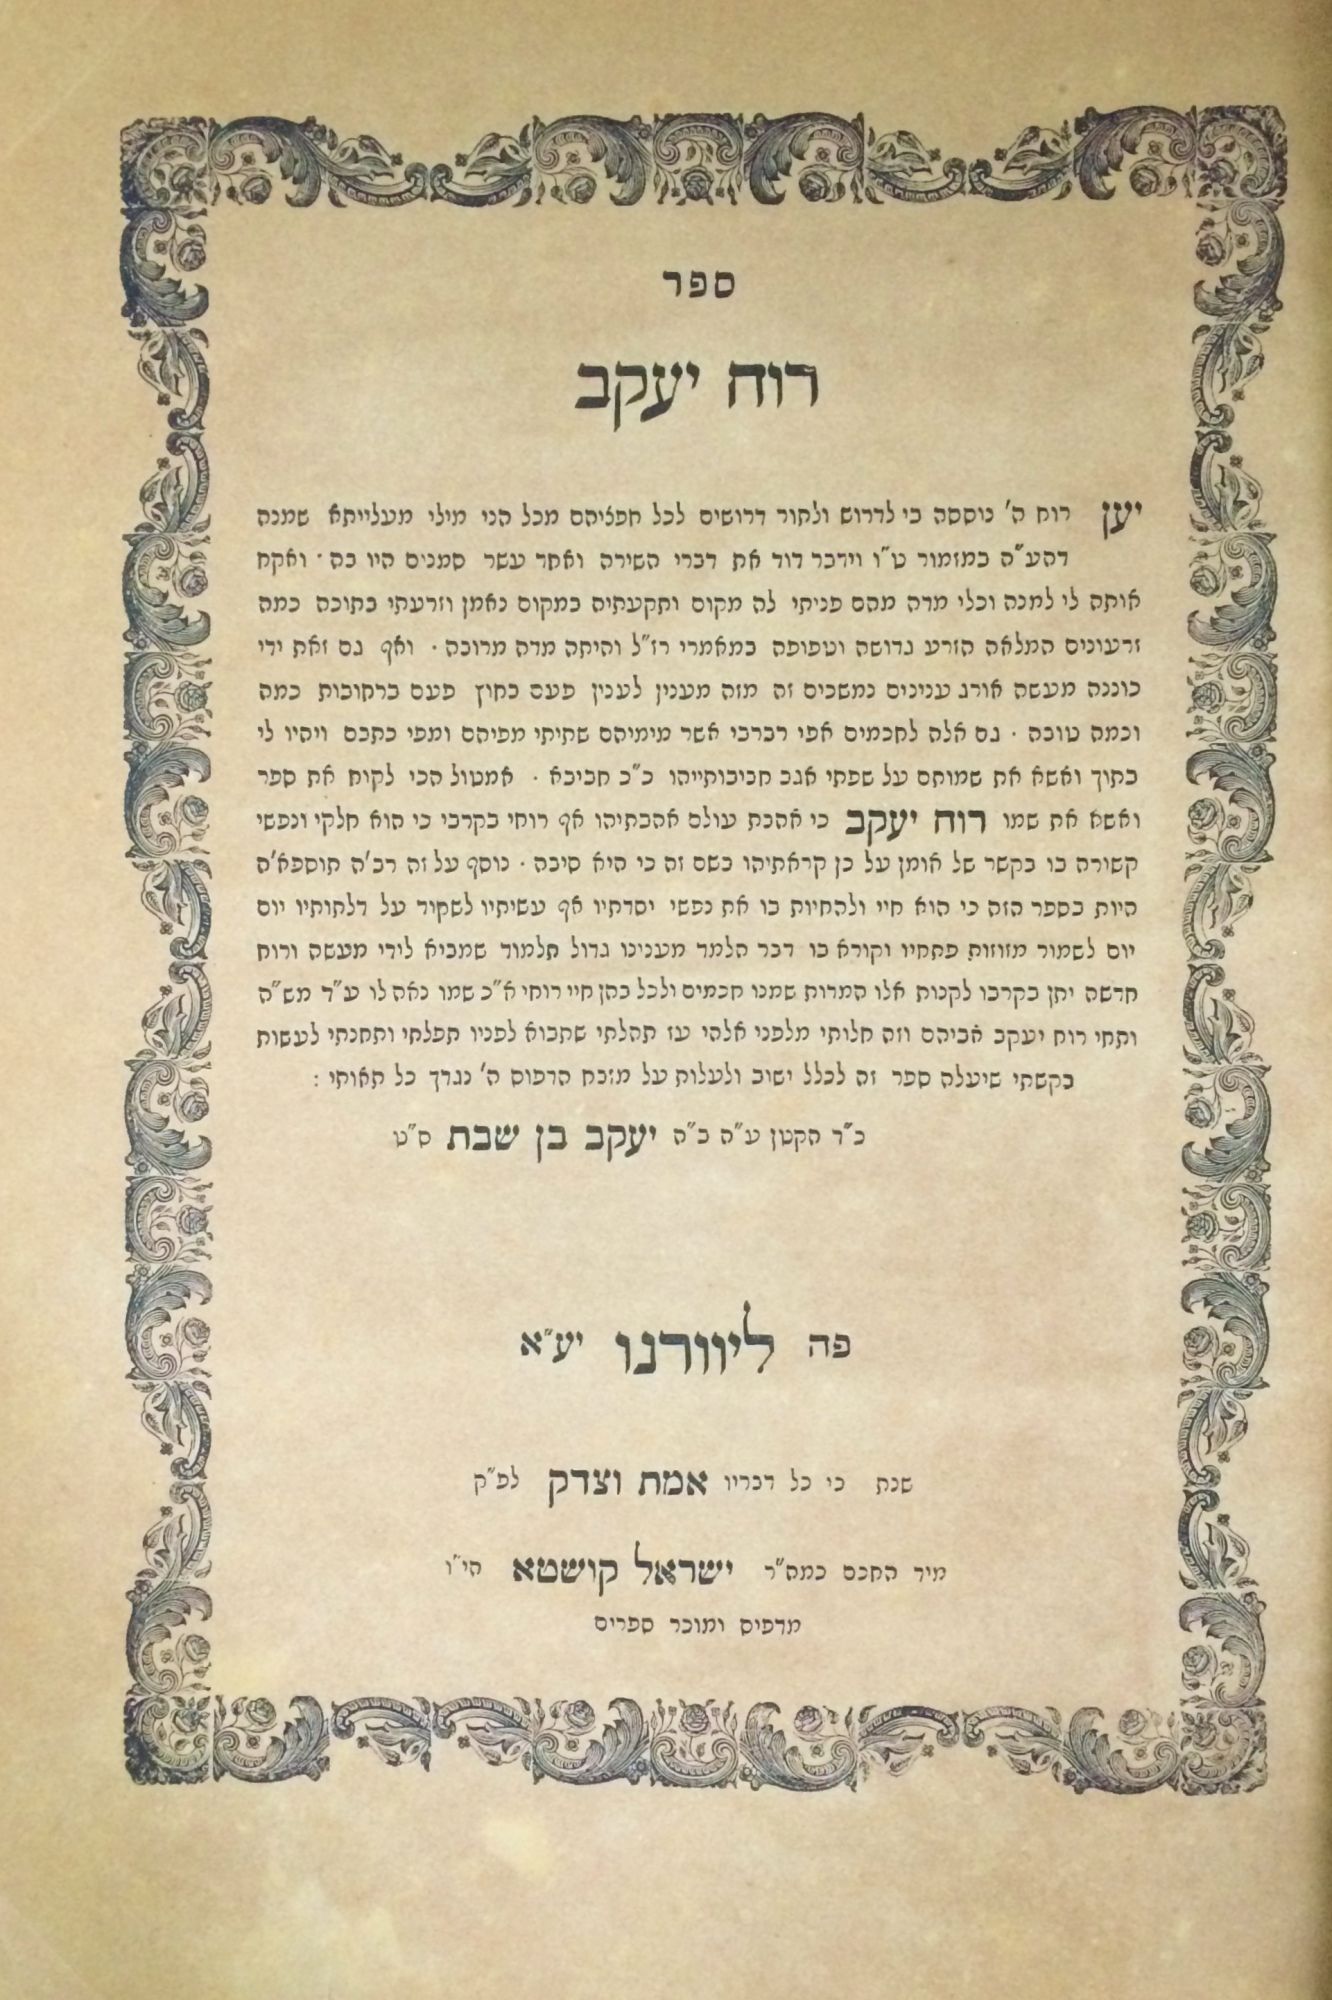 ספר
רוח יעקב
יען רוח ה' נוססה בי לדרוש ולתור דרושים לכל חפציהם מכל הני מילי מעלייתא שמנה
דהע"ה במזמור ט"ו וידבר דוד את דברי השירה ואחד עשר סמנים היו בה · ואקח
אותה לי למנה וכלי מדה מהם פניתי לה מקום ותקעתיה במקום נאמן וזרעתי בתוכה כמה
זרעונים המלאה הזרע גדושה וטפופה במאמרי רז"ל והיתה מדה מרובה · ואף גם זאת ידי
כוננה מעשה אורג ענינים נמשכים זה מזה מענין לענין פעם בחוץ פעם ברחובות כמה
וכמה טובה · גם אלה לחכמים אפי רברבי אשר מימיהם שתיתי מפיהם ומפי כתבם ויהיו לי
בתוך ואשא את שמותם על שפתי אגב חביבותייהו כ"כ חביבא · אמטול הכי לקוח את ספר
ואשא את שמו רוח יעקב כי אהבת עולם אהבתיהו אף רוחי בקרבי כי הוא חלקי ונפשי
קשורה בו בקשר של אומן על כן קראתיהו בשם זה כי היא סיבה · נוסף על זה רב'ה תוספא'ה
היות בספר הזה כי הוא חיי ולהחיות בו את נפשי יסדתיו אף עשיתיו לשקוד על דלתותיו יום
יום לשמור מזוזות פתחיו וקורא בו דבר הלמד מענינו גדול תלמוד שמביא לידי מעשה ורוח
חדשה יתן בקרבו לקנות אלו המדות שמנו חכמים ולכל בהן חיי רוחי א"כ שמו נאה לו ע"ד מש"ה
ותחי רוח יעקב אביהם וזה חלותי מלפני אלהי עז תהלתי שתבוא לפניו תפלתי ותחנתי לעשות
בקשתי שיעלה ספר זה לכלל ישוב ולעלות על מזבח הדפוס ה' נגדך כל תאותי :
כ"ד הקטן ע"ה ב"ה יעקב בן שבת ס"ט
פה ליוורנו יע"א
שנת כי כל דבריו אמת וצדק לפ"ק
מיד החכם כמה"ר ישראל קושטא הי"ו
מדפיס ומוכר ספרים